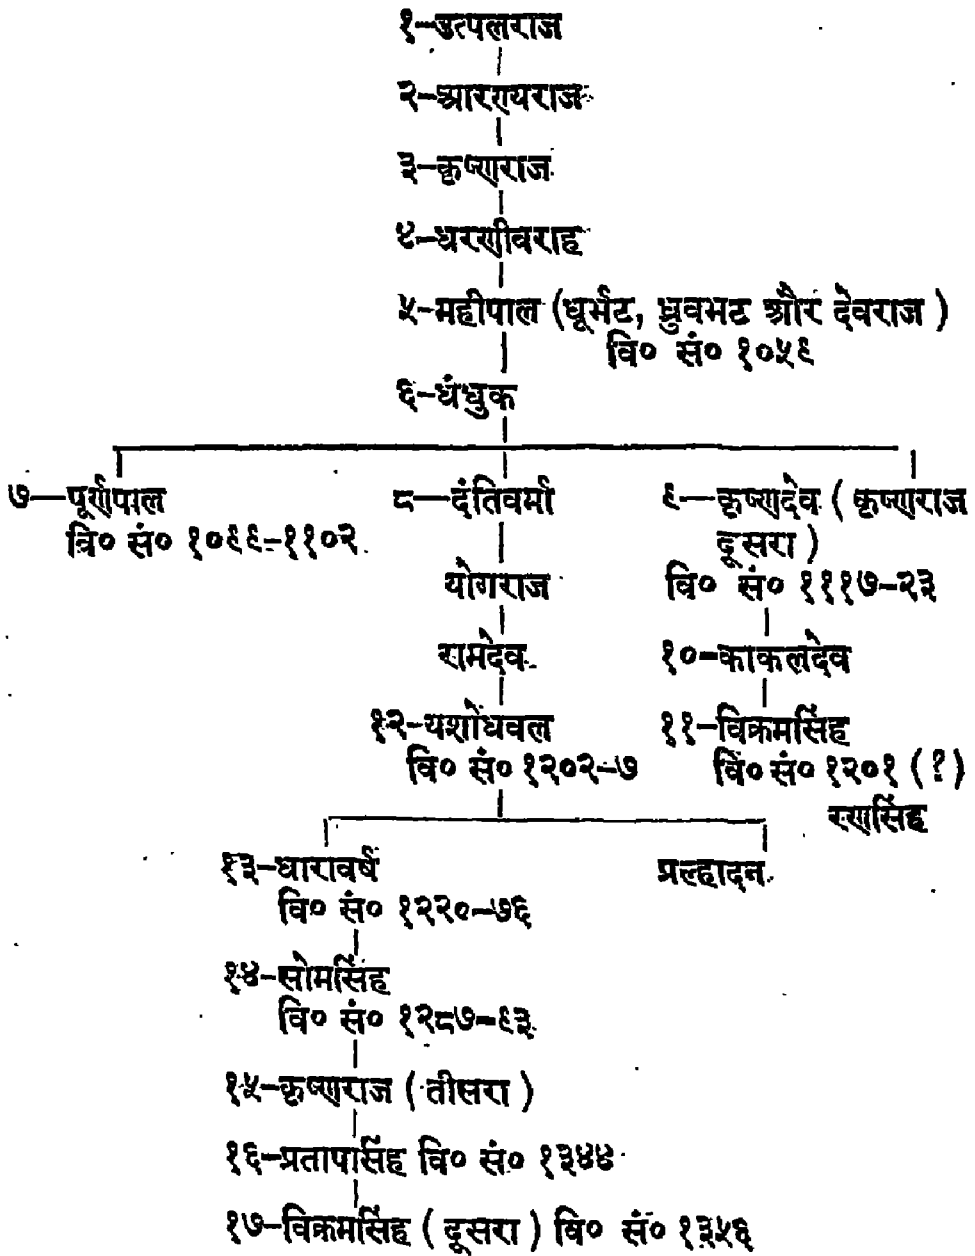 १-उत्पलराज
२-आरण्यराज
३-कृष्णराज
४-धरणीवराह
५-महीपाल (धूर्भट, ध्रुवभट और देवराज)
वि० सं० १०५९
६-धंधुक
७—पूर्णपाल
वि० सं० १०९९-११०२
८—दंतिवर्मा
योगराज
रामदेव
१२-यशोधवल
वि० सं० १२०२-७
९—कृष्णदेव (कृष्णराज
दूसरा)
वि० सं० १११७-२३
१०-काकलदेव
११-विक्रमसिंह
वि० सं० १२०१ (?)
रणसिंह
१३-धारावर्ष
वि० सं० १२२०-७६
प्रल्हादन
१४-सोमसिंह
वि० सं० १२८७-९३
१५-कृष्णराज (तीसरा)
१६-प्रतापसिंह वि० सं० १३४४
१७-विक्रमसिंह (दूसरा) वि० सं० १३५६